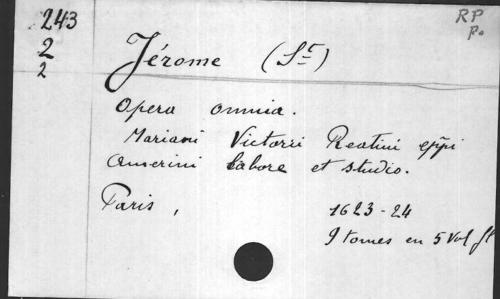 243
2
2
RP
P.
Jérome (St)
Opera omnia.
Mariani Victorii Reatini eppi
Amerini labore et studio.
Paris, 1623-24
9 tomes en 5 Vol fl